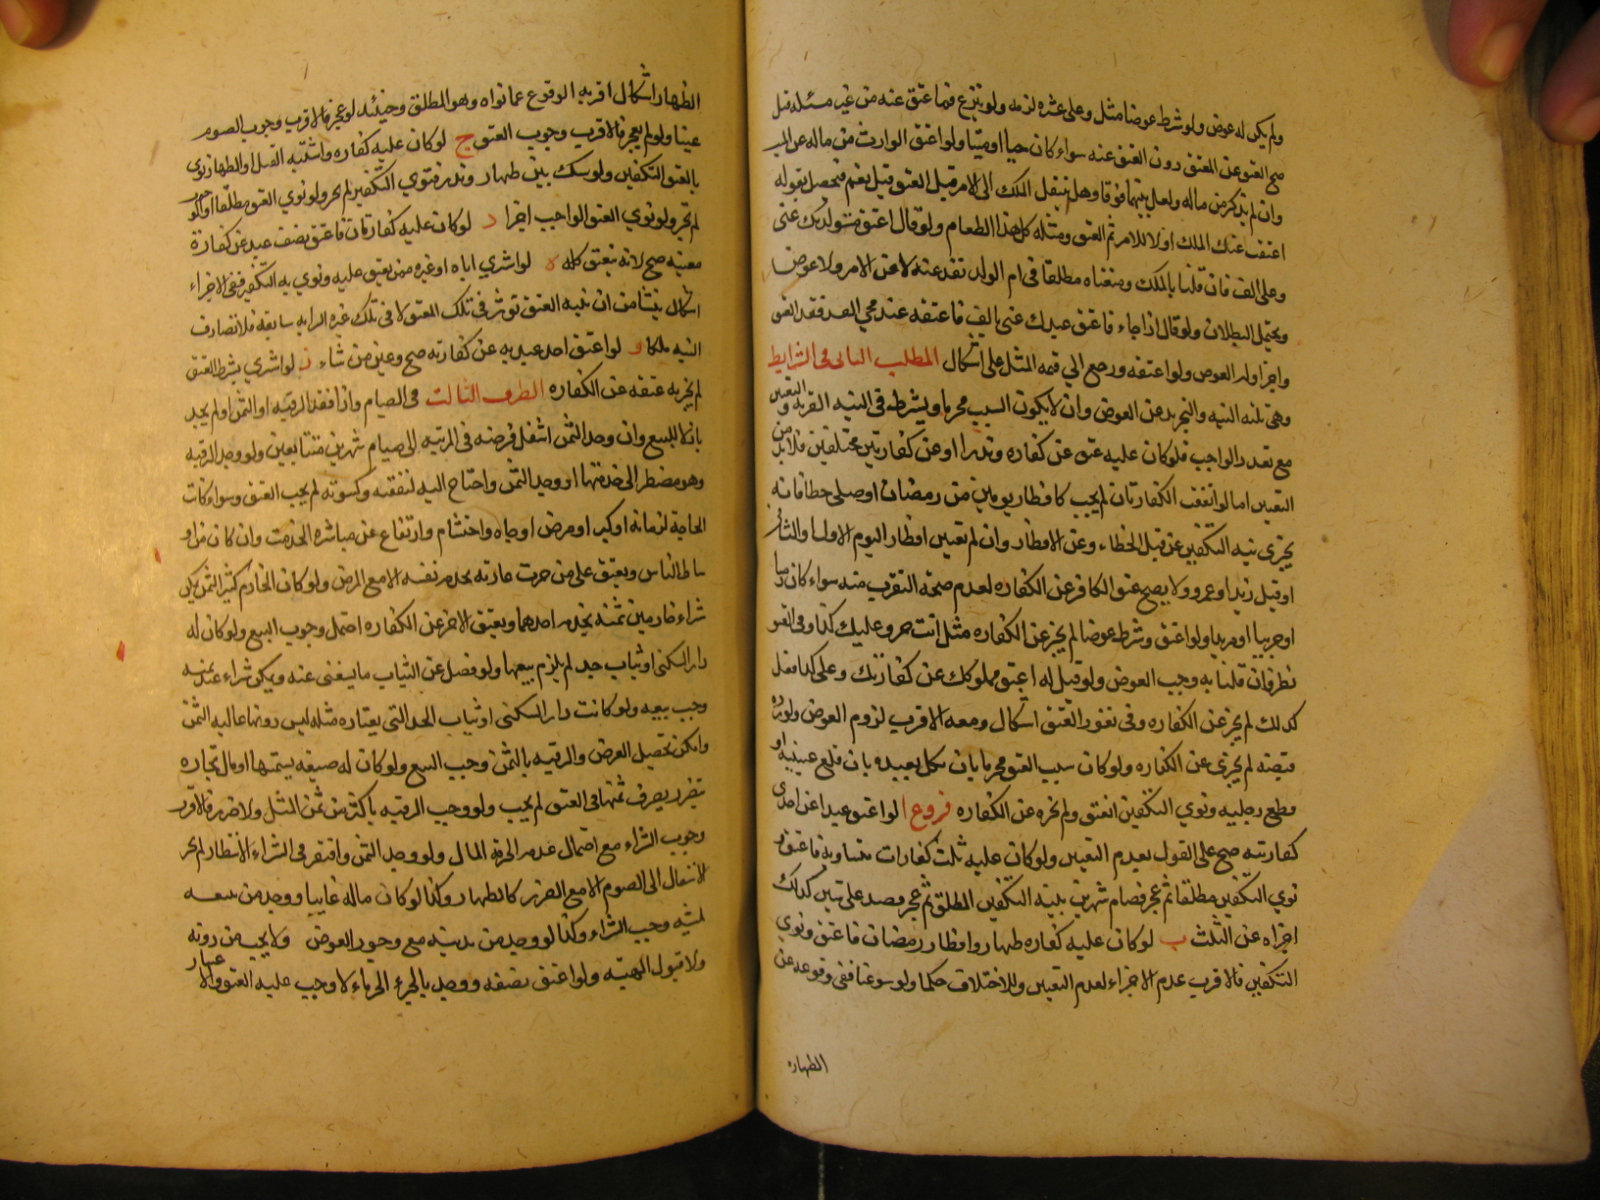 ولم يكن له عوض ولو شرط عوضا مثل وعلى عشره لزمه ولو تبرع فما عتق عنه من غير مسئله قيل
صح العتق عن المعتق دون العتق عنه سواء كان حيا او ميتا ولو اعتق الوارث من ماله عن الميت
وان لم يذكر من ماله ولعل بينهما فرقا وهل ينتقل الملك الى الامر قبل العتق قيل نعم فيحصل بقوله
اعتقت عنك الملك اولا للامر ثم العتق ومثله كل هذا الطعام ولو قال اعتق مستولدتك عنى
وعلى الف فان قلنا بالملك ومنعناه مطلقا فى ام الولد نفذ عتقه لا عن الامر ولا عوض
ويحتمل البطلان ولو قال اذا جاء فاعتق عبدك عنى بالف فاعتقه عند مجي الغد فقد العتق
واجزا وله العوض ولو اعتقه ورجع الي قيمه المثل على اشكال المطلب الثانى فى الشرايط
وهى ثلثه النيه والتجريد عن العوض وان لا يكون السبب محرما ويشترط فى النيه القربه والتعيين
مع تعدد الواجب فلو كان عليه عتق عن كفاره ونذر او عن كفارتين مختلفين فلا بد من
التعيين اما لو اتفقت الكفارتان لم يجب كافطار يومين من رمضان او صلى خطا فانه
يجزى نيه التكفير عن قتل الخطاء وعن الافطار وان لم تعيين افطار اليوم الاول او الثانى
او قتل زيد او عمرو ولا يصح عتق الكافر عن الكفاره لعدم صحة التقرب منه سواء كان ذميا
او حربيا او مرتدا ولو اعتق وشرط عوضا لم يجز عن الكفاره مثل انت حر وعليك كذا وفى العتق
نظر فان قلنا به وجب العوض ولو قيل له اعتق مملوكك عن كفارتك وعلى كذا ففعل
كذلك لم يجز عن الكفاره وفى نفوذ العتق اشكال ومعه الاقرب لزوم العوض ولو رده
قبضه لم يجزى عن الكفاره ولو كان سبب العتق محرما بان نكل بعبده بان قلع عينيه او
قطع رجليه ونوي التكفير انعتق ولم يجزه عن الكفاره فروع ا لو اعتق عبدا عن احدى
كفارتيه صح على القول بعدم التعيين ولو كان عليه ثلث كفارات متساوية فاعتق و
نوي التكفير مطلقا ثم عجز فصام شهرين بنيه التكفير المطلق ثم عجز فتصدق على ستين كذلك
اجزاه عن الثلث ب لو كان عليه كفاره ظهار وافطار رمضان فاعتق ونوي
التكفير فالاقرب عدم الاجزاء لعدم التعيين وللاختلاف حكما ولو سوغنا ففى وقوعه عن
الظهار
الظهار اشكال اقربه الوقوع عما نواه وهو المطلق وحينئد لو عجز فالاقرب وجوب الصوم
عينا ولو لم يعجز فالاقرب وجوب العتق ج لو كان عليه كفاره واشتبه القتل او الظهار نوي
بالعتق التكفير ولو شك بين ظهار ونذر فنوي التكفير لم يجز ولو نوي العتق مطلقا او الوجوب
لم يجز ولو نوي العتق الواجب اجزا د لو كان عليه كفارتان فاعتق نصف عبد عن كفارة
معينه صح لانه ينعتق كله ه لو اشرى اباه او غيره ممن يعتق عليه ونوي به التكفير ففى الاجزاء
اشكال ينشا من ان نيه العتق توثر فى تلك المعتق لا فى تلك غيره السرايه سابقه فلا تصادف
النيه ملكا و لو اعتق احد عبديه عن كفارته صح وعين من شاء ز لو اشري بشرط العتق
لم يجزيه عتقه عن الكفاره الطرف الثالث فى الصيام واذا فقد الرقبه او الثمن او لم يجد
باذلا للبيع وان وجد الثمن انتقل فرضه فى المرتبه الى صيام شهرين متتابعين ولو وجد الرقبه
وهو مضطر الى خدمتها او وجد الثمن واحتاج اليه لنفقته وكسوته لم يجب العتق وسواء كانت
الحاجة لزمانه او كبر او مرض او جاه واحتشام وارتفاع عن مباشره الخدمت وان كان من او
ساط الناس ويعتق على من جرت عادته بخدمه نفسه الا مع المرض ولو كان الخادم كثير الثمن يمكن
شراء خادمين بثمنه يخدم احدهما ويعتق الاخر عن الكفاره احتمل وجوب البيع ولو كان له
دار السكنى او ثياب جسد لم يلزم بيعها ولو فضل عن الثياب ما يستغنى عنه ويمكن شراء عبد بثمنه
وجب بيعه ولو كانت دار السكنى او ثياب الجسد التى يعتاده مثله لبس دونها غاليه الثمن
وامكن تحصيل العوض والرقبه بالثمن وجب البيع ولو كان له ضيعه يستغلها او مال تجاره
يتضرر بصرف ثمنها فى العتق لم يجب ولو وجب الرقبه باكثر من ثمن المثل ولا ضرر فالاقرب
وجوب الشراء مع احتمال عدمه لحرمة المال ولو وجد الثمن وافتقر فى الشراء الانتظار لم يجز
الانتقال الى الصوم الا مع الضرر كالظهار وكذا لو كان ماله غايبا ووجد من يبيعه
نسيه وجب الشراء وكذا لو وجد من يدينه مع وجود العوض ولا يجب من دونه
ولا قبول الهبه ولو اعتق نصفه ووجد بالجزء الحرماء لا وجب عليه العتق والاعتبار